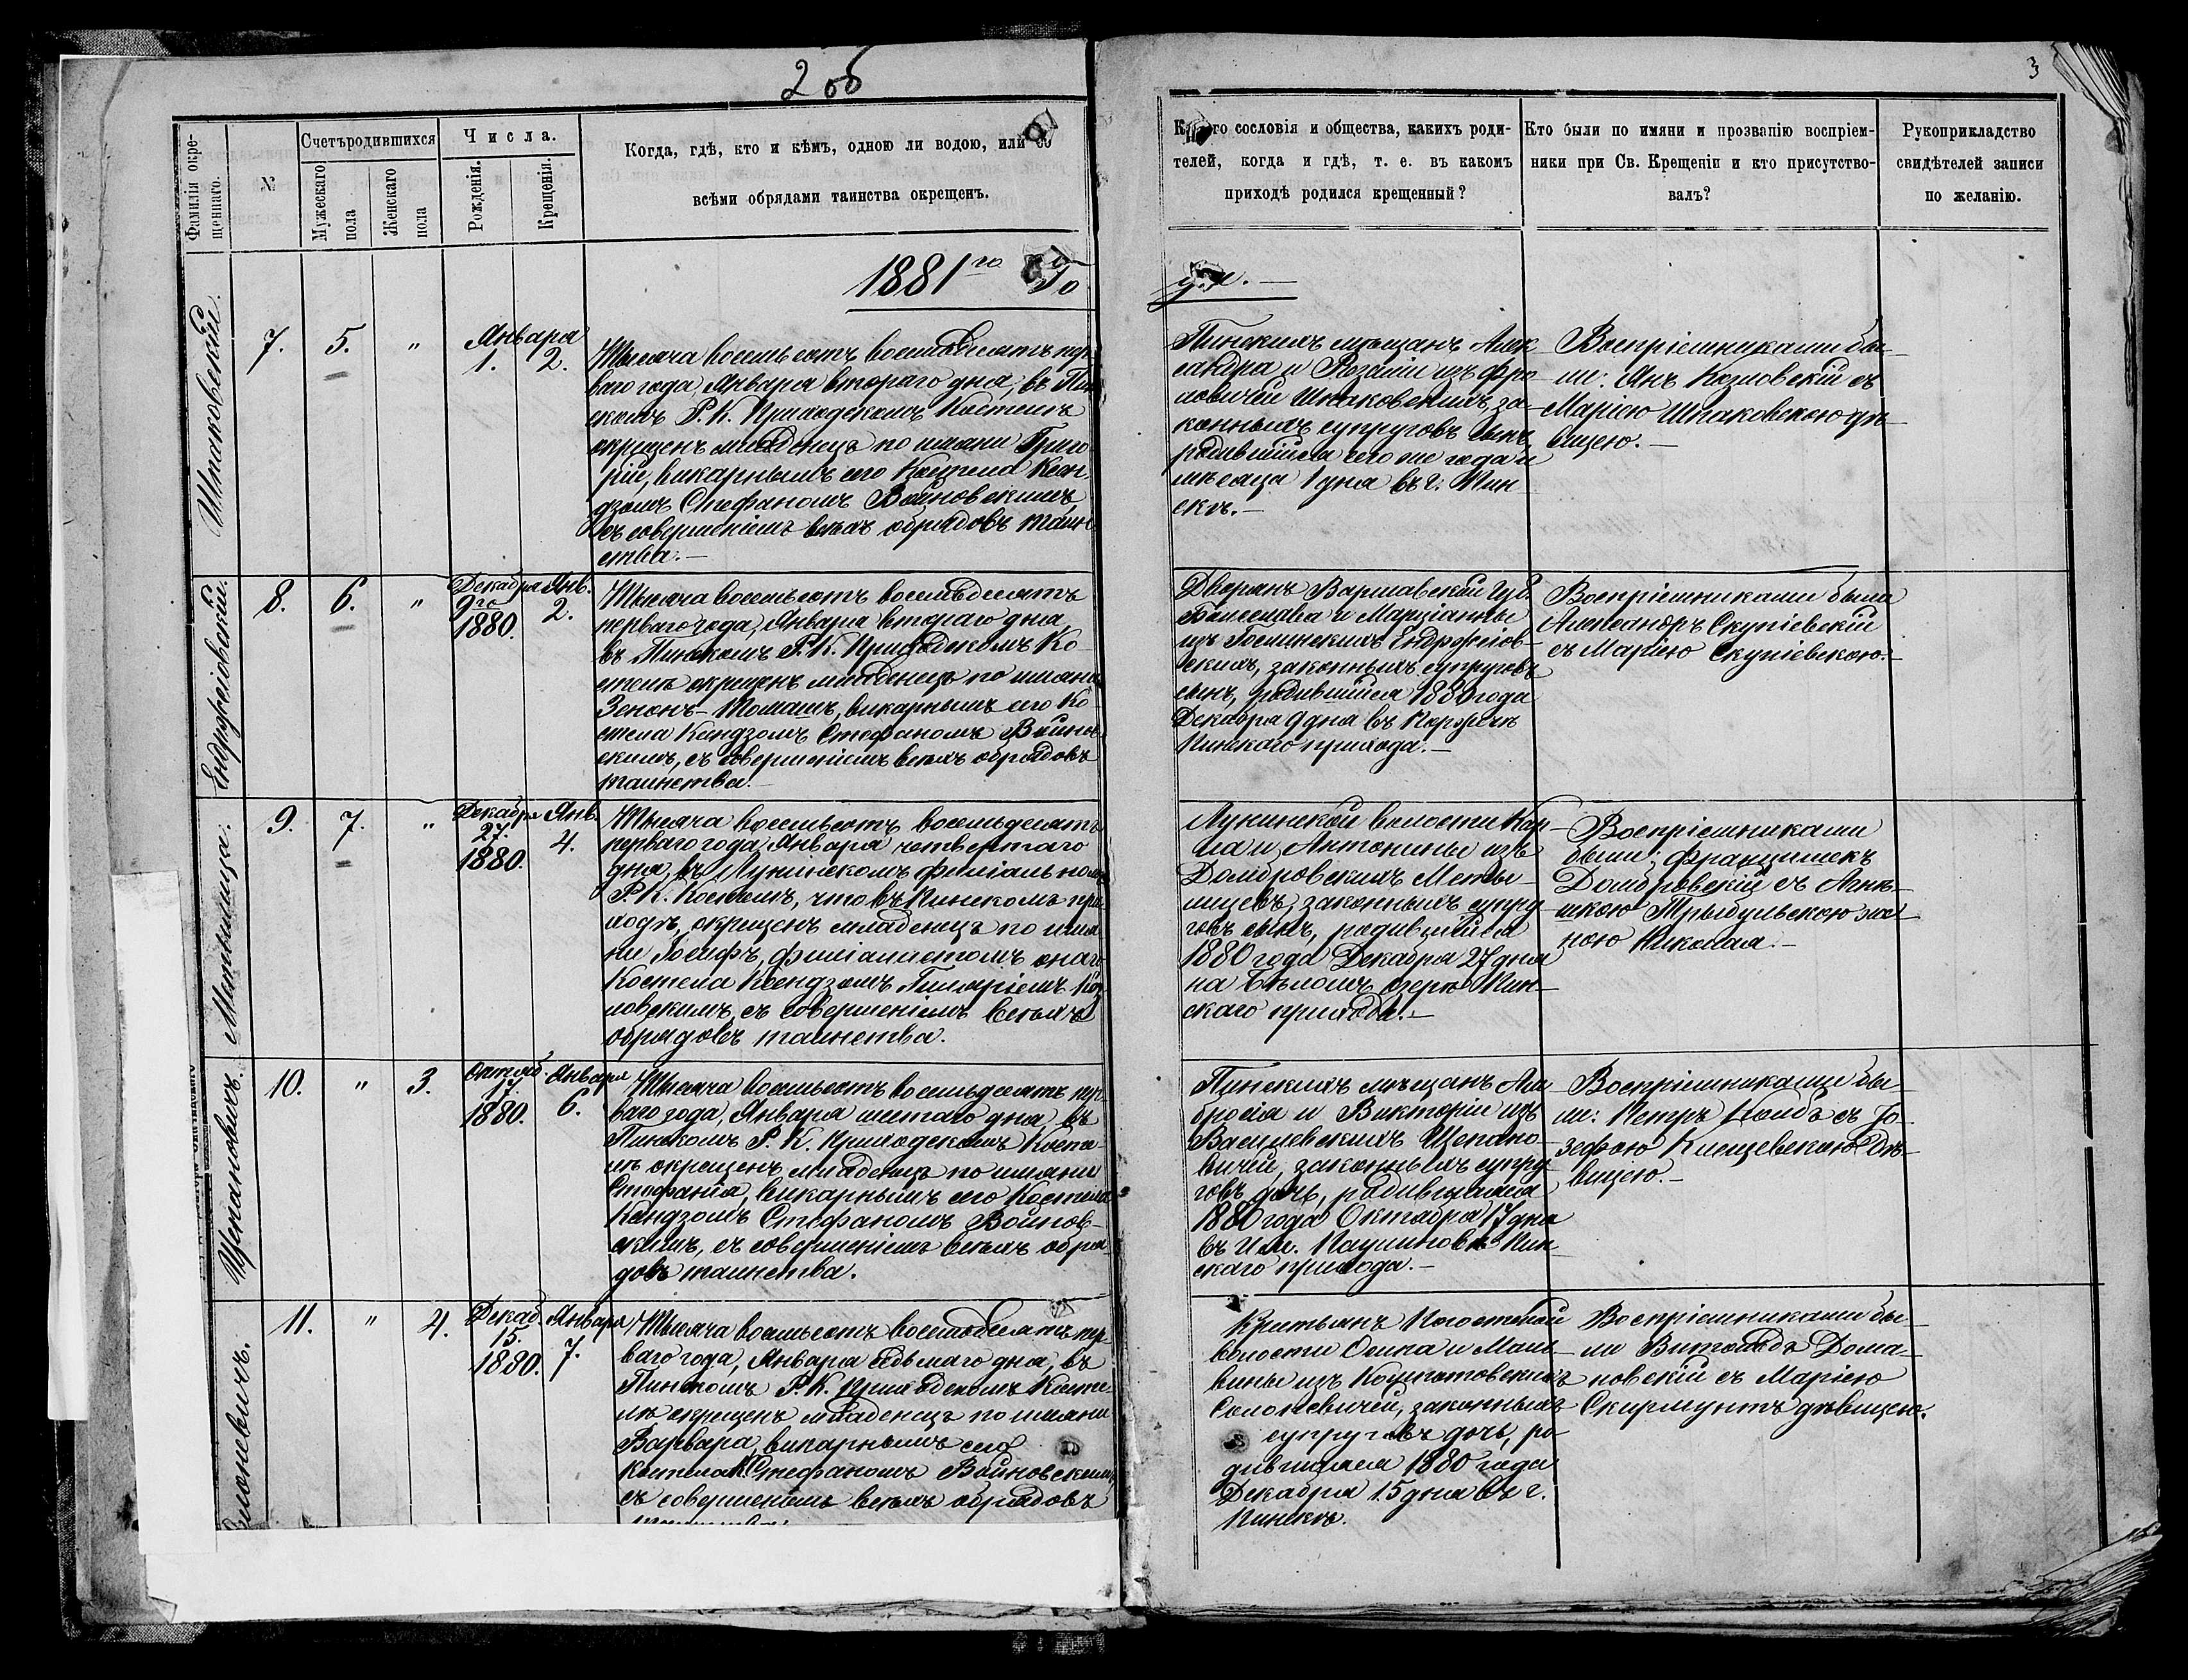 2 об
3
Фамилія окре-
щеннаго.
№
Счетъ родившихся
Мужескаго
пола
Женскаго
пола
Числа.
Рожденія.
Крещенія.
Когда, гдѣ, кто и кѣмъ, одною ли водою, или со
всѣми обрядами таинства окрещенъ.
го сословія и общества, какихъ роди-
телей, когда и гдѣ, т. е. въ какомъ
приходѣ родился крещенный?
Кто были по имяни и прозванію воспріем-
ники при Св. Крещеніи и кто присутство-
валъ?
Рукоприкладство
свидѣтелей записи
по желанію.
1881го Го
да.—
Шпаковскій.
7.
5.
"
Января
1. 2.
Тысяча восемьсотъ восемьдесятъ пер-
ваго года, Января втораго дня, въ Пин
скомъ Р. К. Приходскомъ Костелѣ
окрещенъ младенецъ по имяни Григо
рій, викарнымъ сего Костела Ксен-
дзомъ Стефаномъ Войновскимъ,
съ совершеніемъ всѣхъ обрядовъ таин-
ства.—
Пинскихъ мѣщанъ Алек
сандра и Розаліи изъ Фро
ловичей Шпаковскихъ, за-
конныхъ супруговъ сынъ,
родившійся сего же года и
мѣсяца 1 дня въ г. Пин-
скѣ.—
Воспріемниками бы-
ли: Янъ Козловскій съ
Маріею Шпаковскою дѣ-
вицею.—
Ендржеіовскій.
8.
6.
"
Декабря Янв.
9го 2.
1880.
Тысяча восемьсотъ восемьдесятъ
перваго года, Января втораго дня,
въ Пинскомъ Р. К. Приходскомъ Ко-
стелѣ окрещенъ младенецъ по имяни
Зенонъ-Томашъ, викарнымъ сего Ко-
стела Ксендзомъ Стефаномъ Войнов-
скимъ, съ совершеніемъ всѣхъ обрядовъ
таинства.—
Дворянъ Варшавской Губ.
Болеслава и Марціанны
изъ Ендржеіов-
скихъ, законныхъ супруговъ
сынъ, родившійся 1880 года
Декабря 9 дня въ
Пинскаго прихода.—
Воспріемниками были
Александръ Скупіевскій
съ Маріею Скупіевскою.—
Метышица.
9.
7.
"
Декабря Янв.
27. 4.
1880.
Тысяча восемьсотъ восемьдесятъ
перваго года, Января четвертаго
дня, въ Лунинскомъ филіальномъ
Р. К. Костелѣ, что въ Пинскомъ при
ходѣ, окрещенъ младенецъ по имя
ни Іосифъ, филіалистомъ онаго
Костела Ксендзомъ Гиляріемъ Коз
ловскимъ, съ совершеніемъ всѣхъ
обрядовъ таинства.
Лунинской волости Кар-
ла и Антонины изъ
Домбровскихъ Меты-
шицевъ, законныхъ супру
говъ сынъ, родившійся
1880 года Декабря 27 дня
на Бѣломъ озерѣ Пин-
скаго прихода.—
Воспріемниками
были: Францишекъ
Домбровскій съ Агнѣ-
шкою Трыбульскою же-
ною Николая.—
Щепановичъ.
10.
"
3.
Октяб. Января
17. 6.
1880.
Тысяча восемьсотъ восемьдесятъ пер-
ваго года, Января шестаго дня, въ
Пинскомъ Р. К. Приходскомъ Косте
лѣ окрещенъ младенецъ по имяни
Стефанія, викарнымъ сего Костела
Ксендзомъ Стефаномъ Войнов-
скимъ, съ совершеніемъ всѣхъ обря
довъ таинства.
Пинскихъ мѣщанъ Ам
бросія и Викторіи изъ
Василевскихъ Щепано-
вичей, законныхъ супру
говъ дочь, родившаяся
1880 года Октября 17 дня
въ Им. Пин
скаго прихода.—
Воспріемниками бы-
ли: Петръ Колбъ съ Іо-
зефою Клещевскою дѣ-
вицею.—
Солоневичъ.
11.
"
4.
Декаб. Января
15. 7.
1880.
Тысяча восемьсотъ восемьдесятъ пер
ваго года, Января седьмаго дня, въ
Пинскомъ Р. К. Приходскомъ Косте
лѣ окрещенъ младенецъ по имяни
Варвара, викарнымъ сего
Костела К. Стефаномъ Войновскимъ,
съ совершеніемъ всѣхъ обрядовъ
Крестьянъ Погостской
волости Осипа и Маль-
вины изъ
Солоневичей, законныхъ
супруговъ дочь, ро-
дившаяся 1880 года
Декабря 15 дня въ г.
Пинскѣ.
Воспріемниками бы-
ли Витольдъ Дома-
новскій съ Маріею
Скирмунтъ дѣвицею.